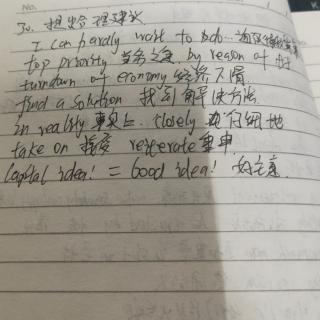 No.
30. 提出合理建议
I can hardly wait to do...
top priority 当务之急. by reason of
turndown of economy 经济不景
find a solution 找到解决方法
in reality 事实上. closely 仔细地
take on 接受 reiterate 重申
Capital idea! = Good idea! 好主意.